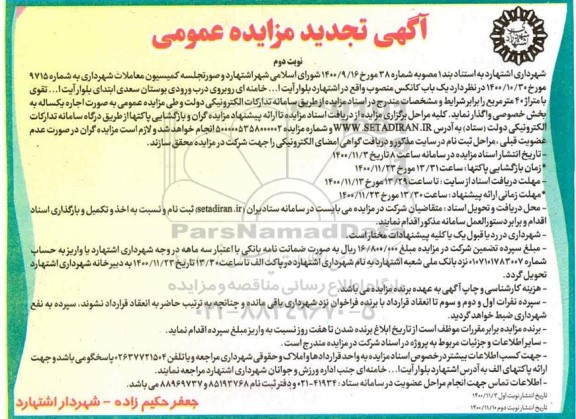 آگهی تجدید مزایده عمومی
نوبت دوم
شهرداری اشتهارد به استناد بند ۱ مصوبه شماره ۳۸ مورخ ۱۴۰۰/۹/۱۶ شورای اسلامی شهر اشتهارد و صورتجلسه کمیسیون معاملات شهرداری به شماره ۹۷۱۵
مورخ ۱۴۰۰/۱۰/۳۰ در نظر دارد یک باب کانکس منصوب واقع در اشتهارد بلوار آیت ا... خامنه ای روبروی درب ورودی بوستان سعدی ابتدای بلوار آیت ا... تقوی
با متراژ ۲۰ متر مربع را برابر شرایط و مشخصات مندرج در اسناد مزایده از طریق سامانه تدارکات الکترونیکی دولت و طی مزایده عمومی به صورت اجاره یکساله به
بخش خصوصی واگذار نماید. کلیه مراحل برگزاری مزایده از دریافت اسناد مزایده تا ارائه پیشنهاد مزایده گران و بازگشایی پاکتها از طریق درگاه سامانه تدارکات
الکترونیکی دولت (ستاد) به آدرس WWW.SETADIRAN.IR و شماره مزایده انجام خواهد شد و لازم است مزایده گران در صورت عدم
عضویت قبلی، مراحل ثبت نام در سایت مذکور و دریافت گواهی امضای الکترونیکی را جهت شرکت در مزایده محقق سازند.
- تاریخ انتشار اسناد مزایده در سامانه ساعت ۸ تاریخ ۱۴۰۰/۱۱/۳
* زمان بازگشایی پاکتها: ساعت ۱۳/۳۱ مورخ ۱۴۰۰/۱۱/۲۳
- مهلت دریافت اسناد از سایت: تا ساعت ۱۳/۲۹ مورخ ۱۴۰۰/۱۱/۱۳
* مهلت زمانی ارائه پیشنهاد: ساعت ۱۳/۳۰ مورخ ۱۴۰۰/۱۱/۲۳
- محل دریافت و تحویل اسناد: متقاضیان شرکت در مزایده می بایست در سامانه ستاد ایران (setadiran.ir) ثبت نام و نسبت به اخذ و تکمیل و بارگذاری اسناد
اقدام و برابر دستورالعمل سامانه مذکور اقدام نمایند.
- شهرداری در رد یا قبول یک یا کلیه پیشنهادات مختار است.
- مبلغ سپرده تضمین شرکت در مزایده مبلغ ۱۶/۸۰۰/۰۰۰ ریال به صورت ضمانت نامه بانکی با اعتبار سه ماهه در وجه شهرداری اشتهارد یا واریز به حساب
شماره ۰۱۰۷۱۰۱۷۸۳۰۰۷ نزد بانک ملی شعبه اشتهارد به نام شهرداری اشتهارد در پاکت الف تا ساعت ۱۳/۳۰ تاریخ ۱۴۰۰/۱۱/۲۳ به دبیرخانه شهرداری اشتهارد
تحویل گردد.
- هزینه کارشناسی و چاپ آگهی به عهده برنده مزایده می باشد.
- سپرده نفرات اول و دوم و سوم تا انعقاد قرارداد با برنده فراخوان نزد شهرداری باقی مانده و چنانچه به ترتیب حاضر به انعقاد قرارداد نشوند، سپرده به نفع
شهرداری ضبط خواهد گردید.
- برنده مزایده برابر مقررات موظف است از تاریخ ابلاغ برنده شدن تا هفت روز نسبت به واریز مبلغ سپرده اقدام نماید.
- سایر اطلاعات و جزئیات مربوط به پروژه در اسناد شرکت در مزایده مندرج است.
- جهت کسب اطلاعات بیشتر در خصوص اسناد مزایده به واحد قراردادها و املاک و حقوقی شهرداری مراجعه و یا تلفن ۰۲۶۳۷۷۲۱۵۰۴ پاسخگو می باشد و جهت
ارائه پاکتهای الف به آدرس اشتهارد بلوار آیت ا... خامنه ای جنب اداره ورزش و جوانان شهرداری اشتهارد مراجعه نمایند.
- اطلاعات تماس جهت انجام مراحل عضویت در سامانه ستاد: ۴۱۹۳۴-۰۲۱ و دفتر ثبت نام ۸۵۱۹۳۷۶۸ و ۸۸۹۶۹۷۳۷ می باشد.
تاریخ انتشار نوبت اول ۱۴۰۰/۱۱/۳
تاریخ انتشار نوبت دوم ۱۴۰۰/۱۱/۱۰
جعفر حکیم زاده - شهردار اشتهارد
ParsNamadData
۰۲۱-۸۸۳۴۹۶۷۰-۵